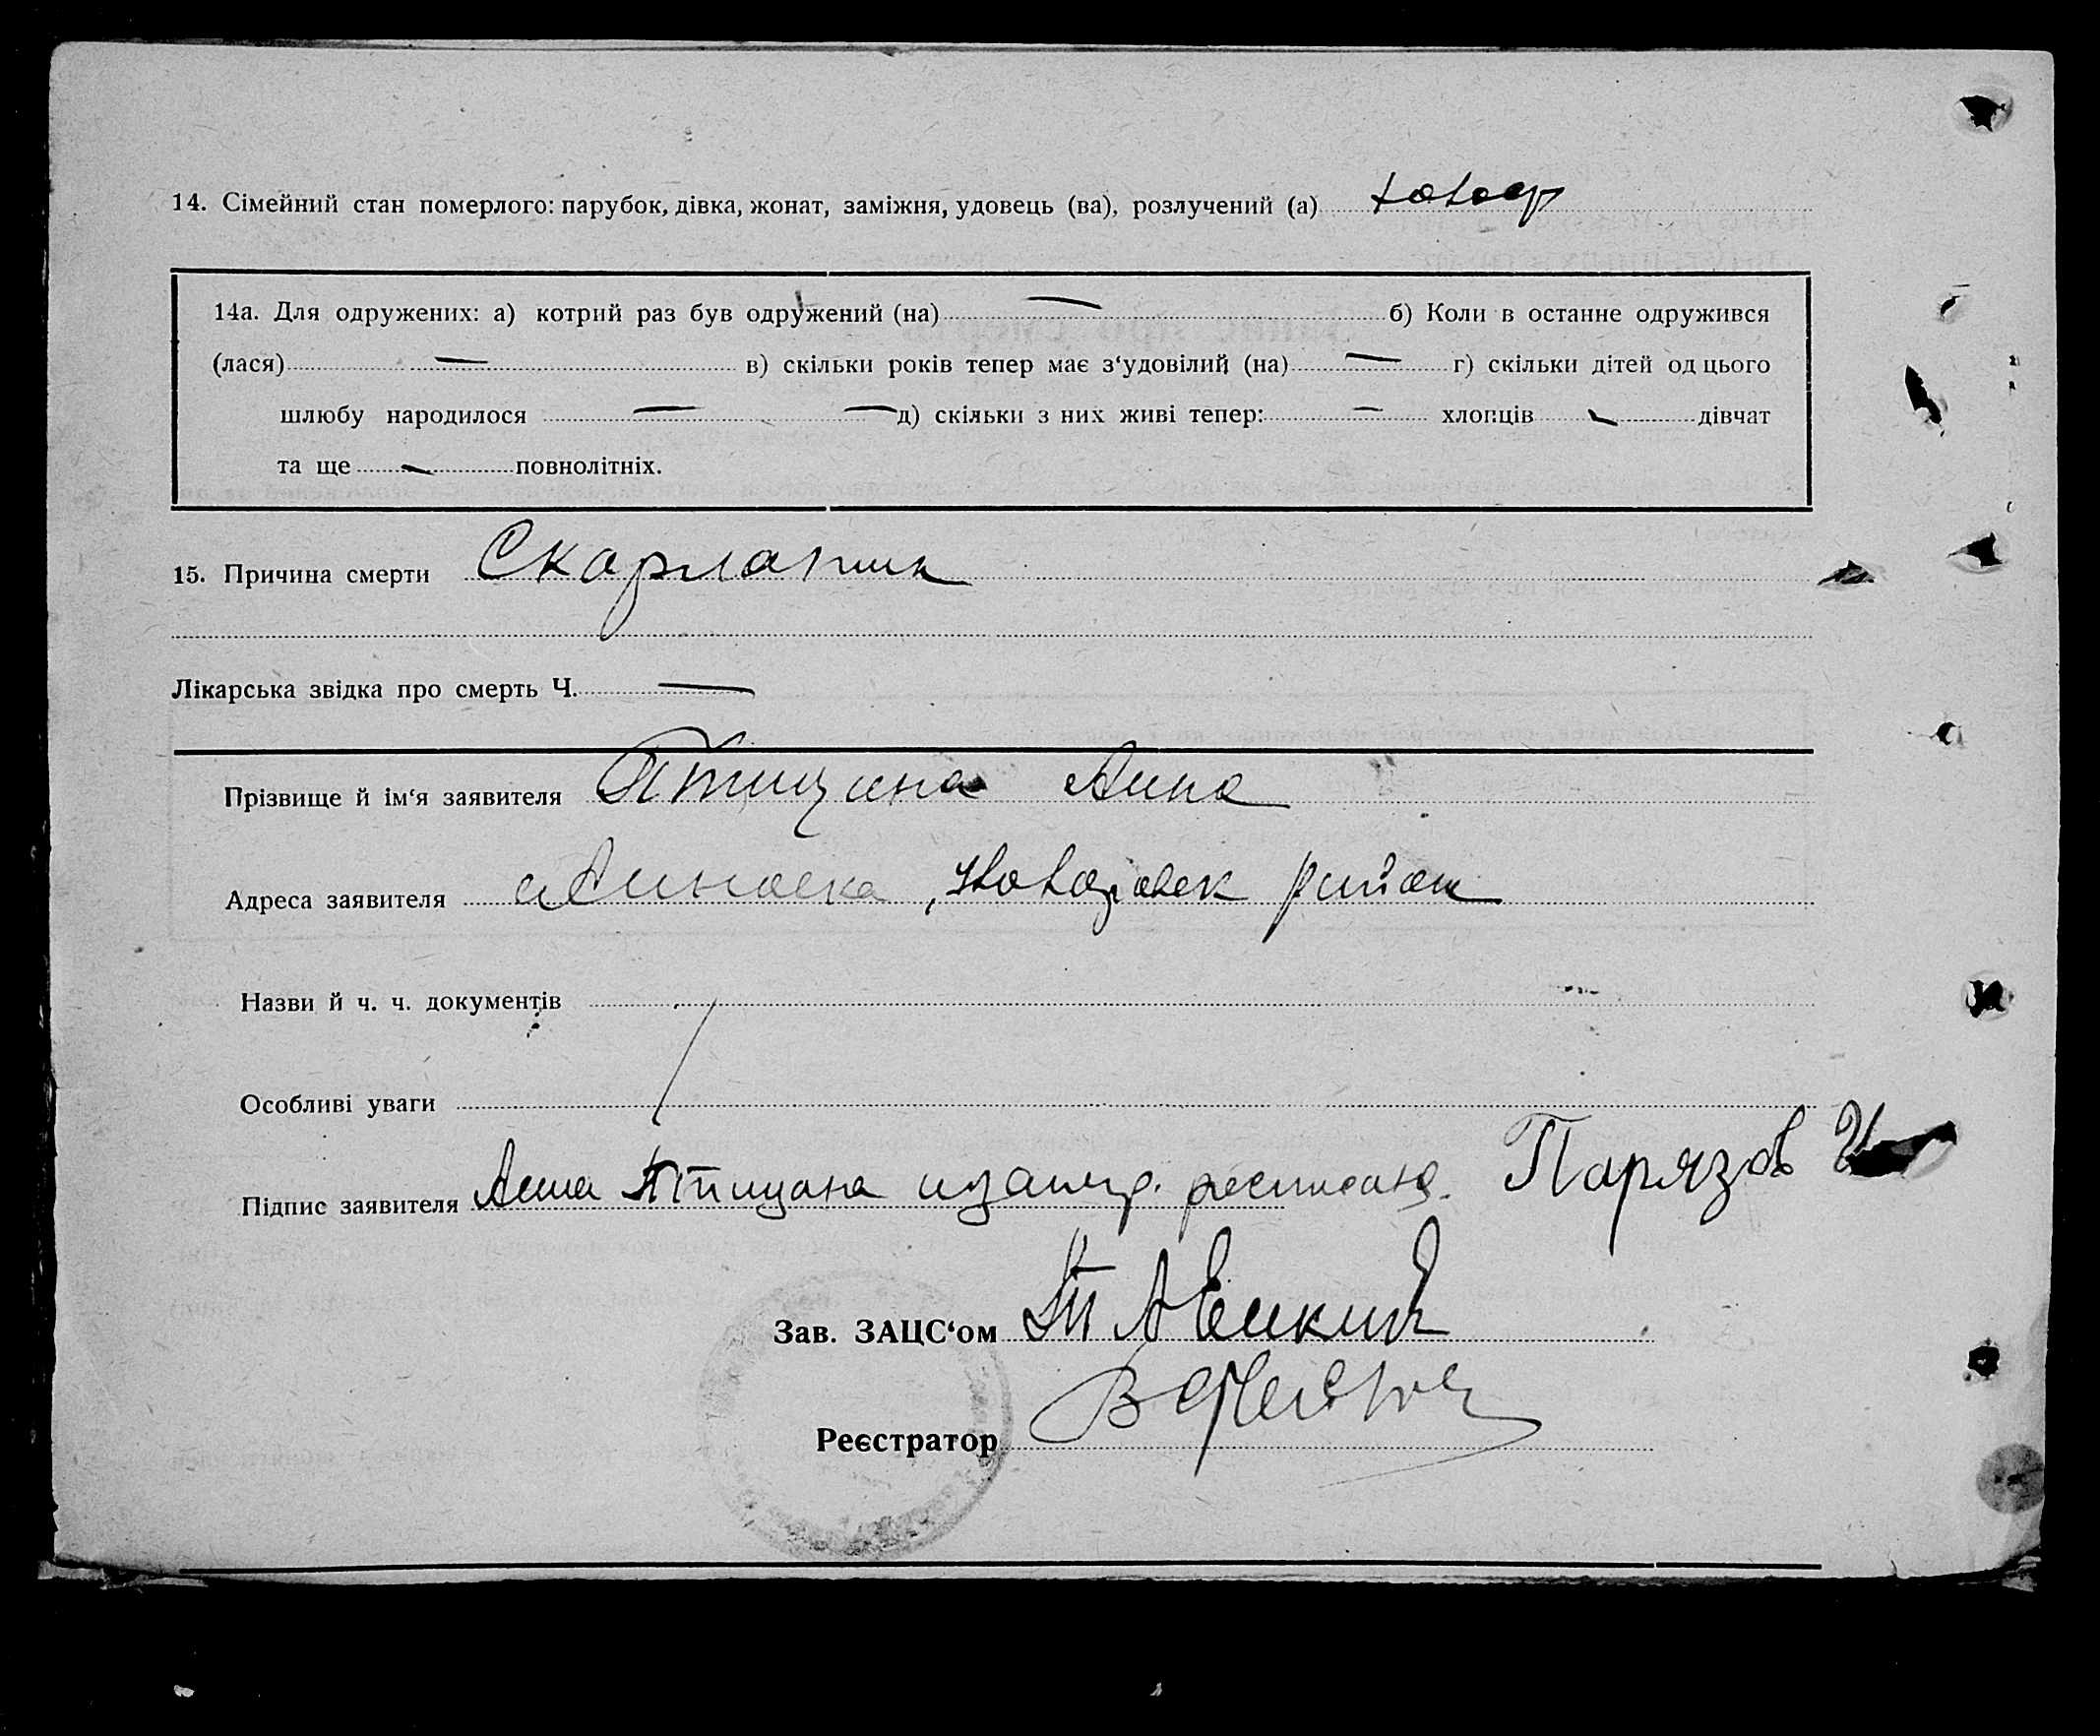 14. Сімейний стан померлого: парубок, дівка, жонат, заміжня, удовець (ва), розлучений (а)
14а. Для одружених: а) котрий раз був одружений (на) — б) Коли в останне одружився
(лася) — в) скільки років тепер має з‘удовілий (на) — г) скільки дітей од цього
шлюбу народилося — — д) скільки з них живі тепер: — хлопців — дівчат
та ще — повнолітніх.
15. Причина смерти Скарлатин
Лікарська звідка про смерть Ч. —
Прізвище й ім‘я заявителя Птицина Анна
Адреса заявителя район
Назви й ч. ч. документів
Особливі уваги
Підпис заявителя Анна Парязов
Зав. ЗАЦС‘ом
Реєстратор